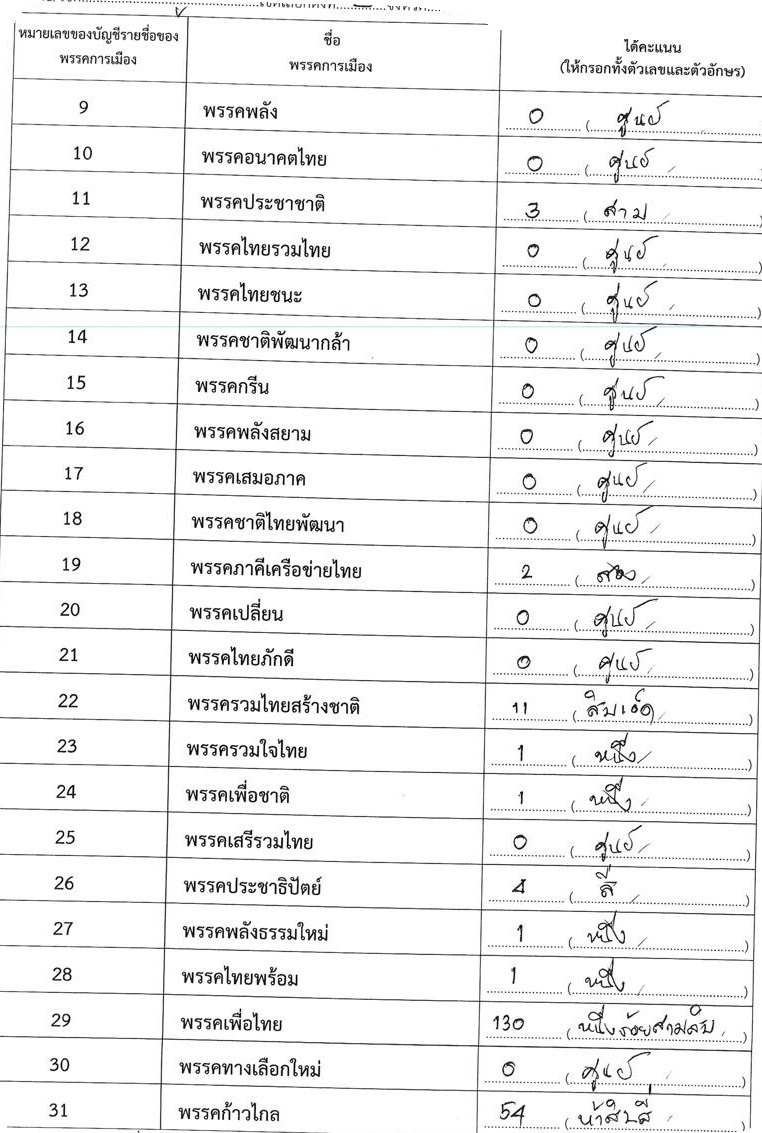 หมายเลขของบัญชีรายชื่อของ ชื่อ ได้คะแนน
พรรคการเมือง พรรคการเมือง (ให้กรอกทั้งตัวเลขและตัวอักษร)
9 พรรคพลัง 0 (ศูนย์)
10 พรรคอนาคตไทย 0 (ศูนย์)
11 พรรคประชาชาติ 3 (สาม)
12 พรรคไทยรวมไทย 0 (ศูนย์)
13 พรรคไทยชนะ 0 (ศูนย์)
14 พรรคชาติพัฒนากล้า 0 (ศูนย์)
15 พรรคกรีน 0 (ศูนย์)
16 พรรคพลังสยาม 0 (ศูนย์)
17 พรรคเสมอภาค 0 (ศูนย์)
18 พรรคชาติไทยพัฒนา 0 (ศูนย์)
19 พรรคภาคีเครือข่ายไทย 2 (สอง)
20 พรรคเปลี่ยน 0 (ศูนย์)
21 พรรคไทยภักดี 0 (ศูนย์)
22 พรรครวมไทยสร้างชาติ 11 (สิบเอ็ด)
23 พรรครวมใจไทย 1 (หนึ่ง)
24 พรรคเพื่อชาติ 1 (หนึ่ง)
25 พรรคเสรีรวมไทย 0 (ศูนย์)
26 พรรคประชาธิปัตย์ 4 (สี่)
27 พรรคพลังธรรมใหม่ 1 (หนึ่ง)
28 พรรคไทยพร้อม 1 (หนึ่ง)
29 พรรคเพื่อไทย 130 (หนึ่งร้อยสามสิบ)
30 พรรคทางเลือกใหม่ 0 (ศูนย์)
31 พรรคก้าวไกล 54 (ห้าสิบสี่)